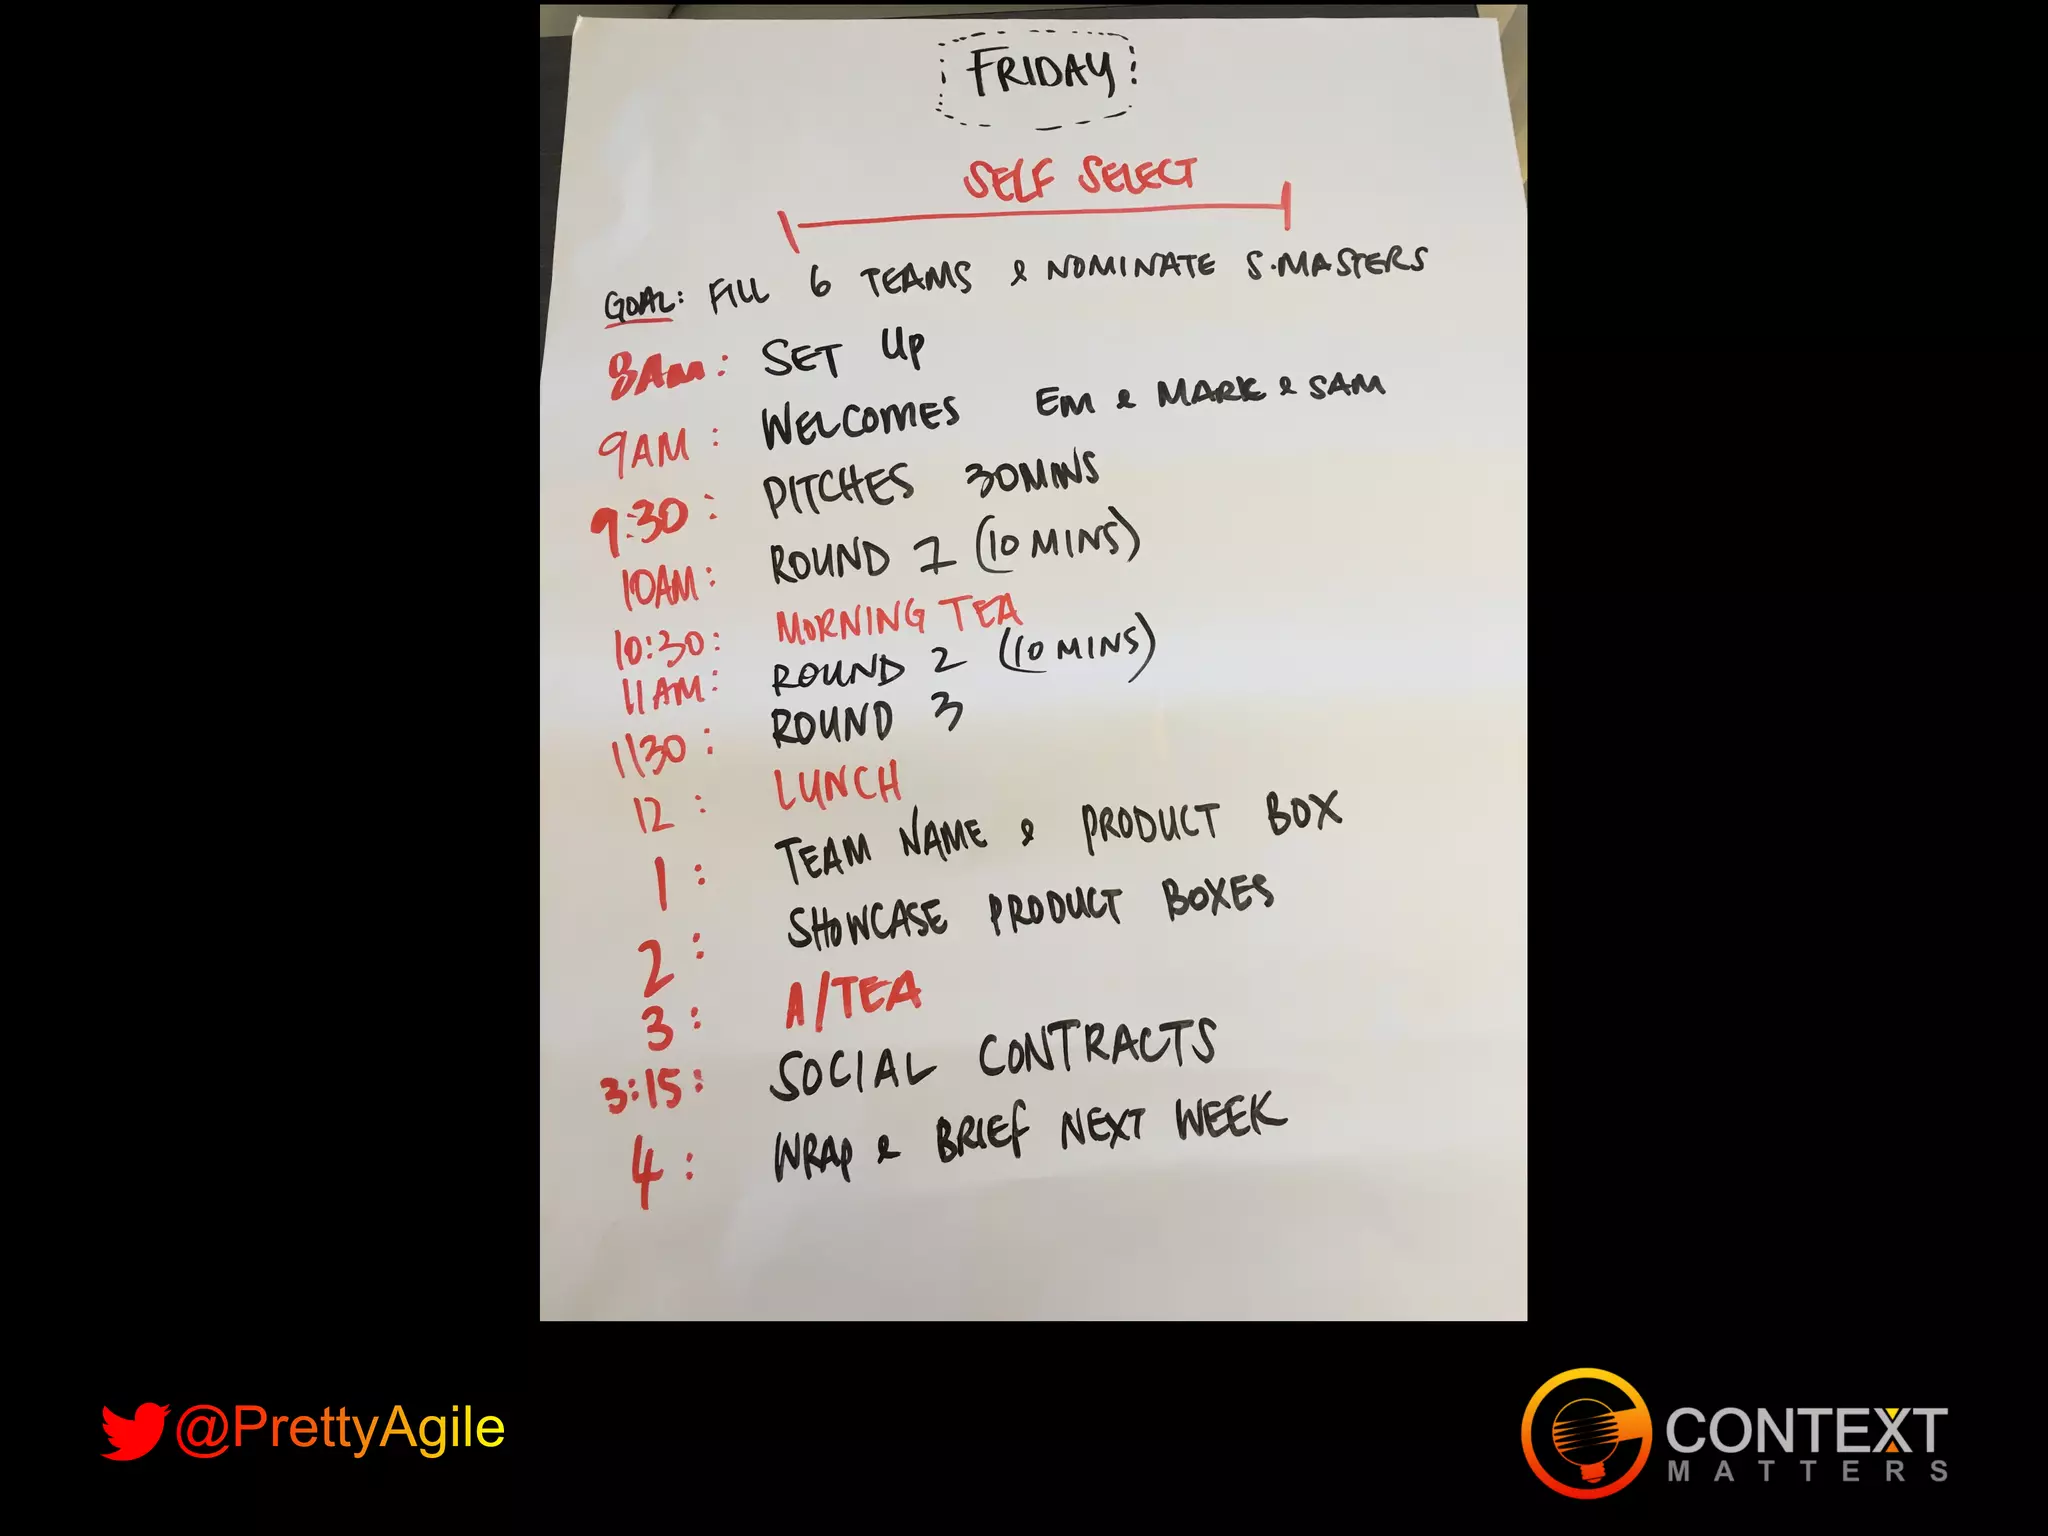 FRIDAY
SELF SELECT
GOAL: FILL 6 TEAMS & NOMINATE S.MASTERS
8AM: SET UP
9AM: WELCOMES EM & MARK & SAM
9:30: PITCHES 30MINS
10AM: ROUND 1 (10 MINS)
10:30: MORNING TEA
11AM: ROUND 2 (10 MINS)
1130: ROUND 3
12: LUNCH
1: TEAM NAME & PRODUCT BOX
2: SHOWCASE PRODUCT BOXES
3: A/TEA
3:15: SOCIAL CONTRACTS
4: WRAP & BRIEF NEXT WEEK
@PrettyAgile
CONTEXT
MATTERS